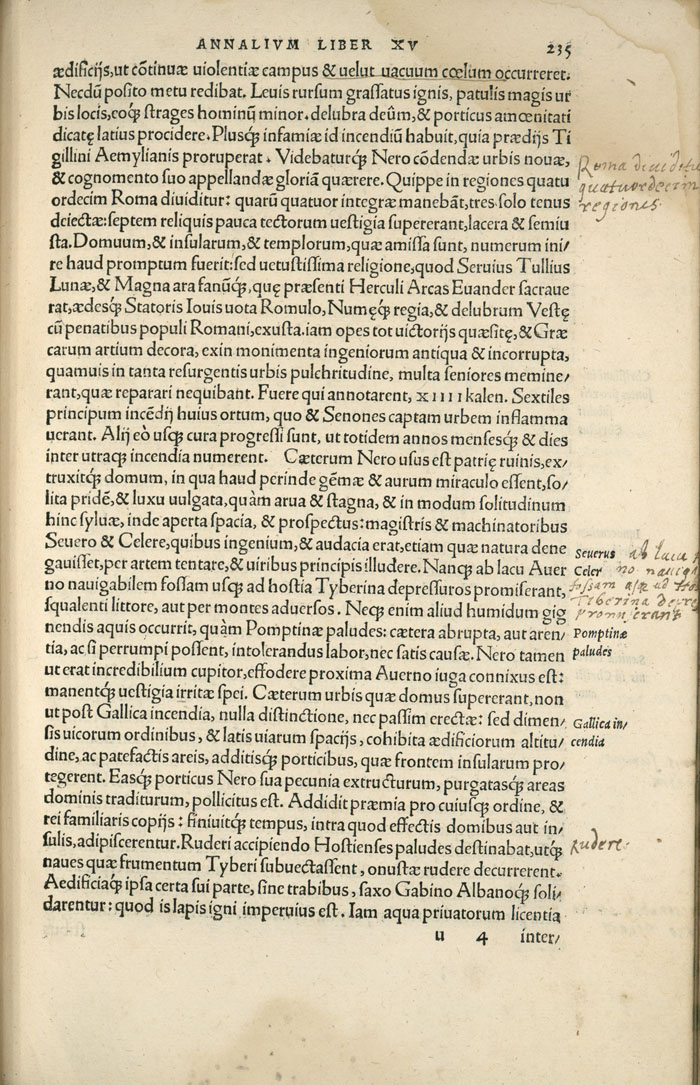 ANNALIVM LIBER XV 235
ædificijs, ut cõtinuæ uiolentiæ campus & uelut uacuum cœlum occurreret.
Necdũ posito metu redibat. Leuis rursum grassatus ignis, patulis magis ur
bis locis, eoq́; strages hominũ minor. delubra deûm, & porticus amœnitati
dicatę latius procidere. Plusq́; infamiæ id incendiũ habuit, quia prædijs Ti
gillini Aemylianis proruperat. Videbaturq́; Nero cõdendæ urbis nouæ,
& cognomento suo appellandæ gloriã quærere. Quippe in regiones quatu
ordecim Roma diuiditur: quarũ quatuor integræ manebãt, tres solo tenus
deiectæ: septem reliquis pauca tectorum uestigia supererant, lacera & semiu
sta. Domuum, & insularum, & templorum, quæ amissa sunt, numerum ini/
re haud promptum fuerit: sed uetustissima religione, quod Seruius Tullius
Lunæ, & Magna ara fanũq́;, quę præsenti Herculi Arcas Euander sacraue
rat, ædesq́; Statoris Iouis uota Romulo, Numęq́; regia, & delubrum Vestę
cũ penatibus populi Romani, exusta. iam opes tot uictorijs quæsitę, & Græ
carum artium decora, exin monimenta ingeniorum antiqua & incorrupta,
quamuis in tanta resurgentis urbis pulchritudine, multa seniores memine/
rant, quæ reparari nequibant. Fuere qui annotarent, XIIII kalen. Sextiles
principum incẽdij huius ortum, quo & Senones captam urbem inflamma
uerant. Alij eò usq́; cura progressi sunt, ut totidem annos mensesq́; & dies
inter utraq́; incendia numerent. Cæterum Nero usus est patrię ruinis, ex/
truxitq́; domum, in qua haud perinde gẽmæ & aurum miraculo essent, so/
lita pridẽ, & luxu uulgata, quàm arua & stagna, & in modum solitudinum
hinc syluæ, inde aperta spacia, & prospectus: magistris & machinatoribus
Seuero & Celere, quibus ingenium, & audacia erat, etiam quæ natura dene
gauisset, per artem tentare, & uiribus principis illudere. Nanq́; ab lacu Auer
no nauigabilem fossam usq́; ad hostia Tyberina depressuros promiserant,
squalenti littore, aut per montes aduersos. Neq́; enim aliud humidum gig
nendis aquis occurrit, quàm Pomptinæ paludes: cætera abrupta, aut aren/
tia, ac si perrumpi possent, intolerandus labor, nec satis causæ. Nero tamen
ut erat incredibilium cupitor, effodere proxima Auerno iuga connixus est:
manentq́; uestigia irritæ spei. Cæterum urbis quæ domus supererant, non
ut post Gallica incendia, nulla distinctione, nec passim erectæ: sed dimen/
sis uicorum ordinibus, & latis uiarum spacijs, cohibita ædificiorum altitu/
dine, ac patefactis areis, additisq́; porticibus, quæ frontem insularum pro/
tegerent. Easq́; porticus Nero sua pecunia extructurum, purgatasq́; areas
dominis traditurum, pollicitus est. Addidit præmia pro cuiusq́; ordine, &
rei familiaris copijs: finiuitq́; tempus, intra quod effectis domibus aut in/
sulis, adipiscerentur. Ruderi accipiendo Hostienses paludes destinabat, utq́;
naues quæ frumentum Tyberi subuectassent, onustæ rudere decurrerent.
Aedificiaq́; ipsa certa sui parte, sine trabibus, saxo Gabino Albanoq́; soli/
darentur: quod is lapis igni imperuius est. Iam aqua priuatorum licentia
u 4 inter/
Roma diuiditu
quatuordecim
regiones.
Seuerus
Celer
ab lacu
no nauiga
fossam usq́; ad
Tiberina depre
promiserant
Pomptinæ
paludes
Gallica in/
cendia
Rudere.